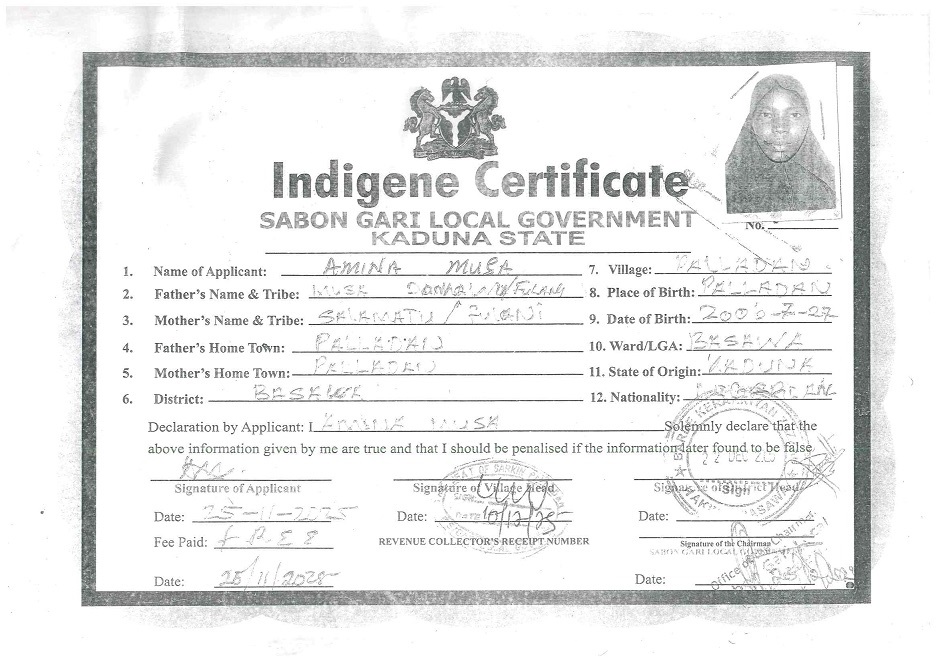 Indigene Certificate
SABON GARI LOCAL GOVERNMENT
KADUNA STATE
No.
1. Name of Applicant: AMINA MUSA
2. Father's Name & Tribe: MUSA
3. Mother's Name & Tribe: SALAMATU / FULANI
4. Father's Home Town: PALLADAN
5. Mother's Home Town: PALLADAN
6. District: BASAWA
7. Village: PALLADAN
8. Place of Birth: PALLADAN
9. Date of Birth:
10. Ward/LGA: BASAWA
11. State of Origin: KADUNA
12. Nationality:
Declaration by Applicant: I AMINA MUSA Solemnly declare that the
above information given by me are true and that I should be penalised if the information later found to be false.
Signature of Applicant
Signature of Village Head
Signature of District Head
Date: 25-11-2025
Date: 10/12/25
Date:
Fee Paid: FREE
REVENUE COLLECTOR'S RECEIPT NUMBER
Signature of the Chairman
SABON GARI LOCAL
Date: 25/11/2025
Date:
22 DEC
Sign
Office of the Chairman